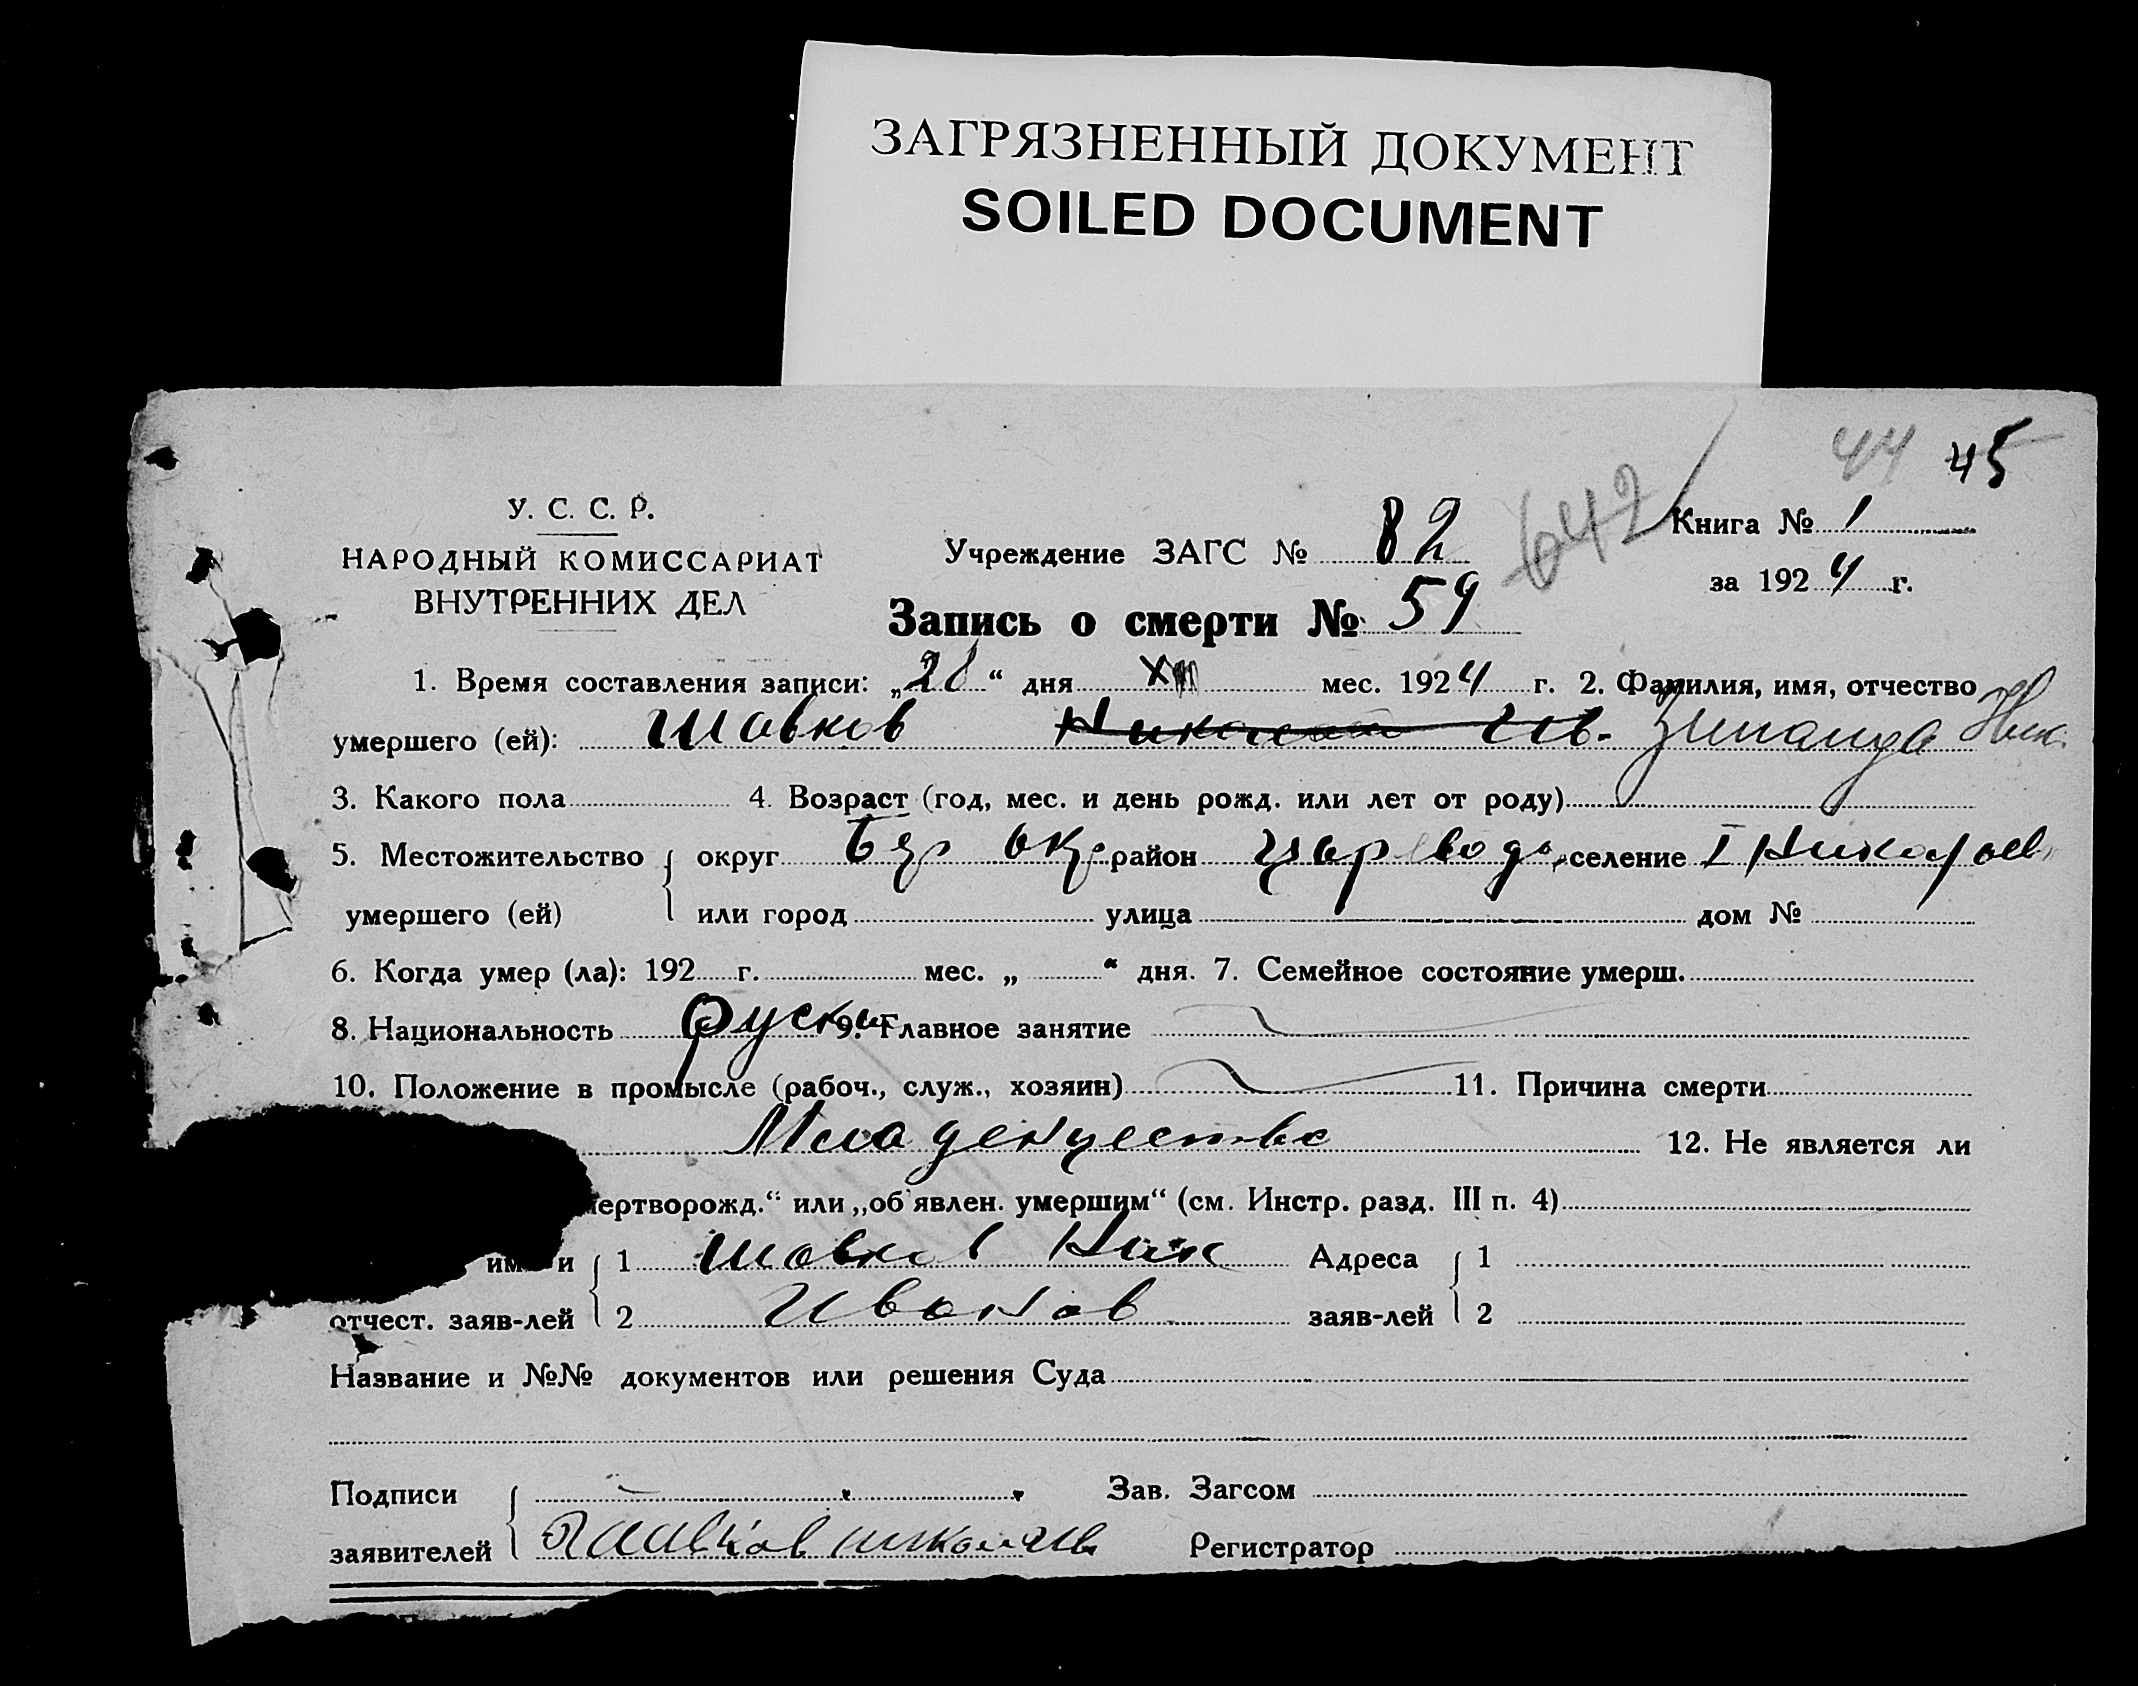 ЗАГРЯЗНЕННЫЙ ДОКУМЕНТ
SOILED DOCUMENT
44 45
У. С. С. Р.
НАРОДНЫЙ КОМИССАРИАТ
ВНУТРЕННИХ ДЕЛ
Учреждение ЗАГС № 82
642
Книга № 1
за 1924 г.
Запись о смерти № 59
1. Время составления записи: „28“ дня XII мес. 1924 г. 2. Фамилия, имя, отчество
умершего (ей): Шавков Николай Ив. Зинаида Ник.
3. Какого пола 4. Возраст (год, мес. и день рожд. или лет от роду)
5. Местожительство округ окр. район селение I
умершего (ей) или город улица дом №
6. Когда умер (ла): 192 г. мес. „ “ дня. 7. Семейное состояние умерш.
8. Национальность Руский 9. Главное занятие
10. Положение в промысле (рабоч., служ., хозяин) 11. Причина смерти
Младенчество 12. Не является ли
мертворожд.“ или „об'явлен. умершим“ (см. Инстр. разд. III п. 4)
имя и 1 Шавков Ник Адреса 1
отчест. заяв-лей 2 Иванов заяв-лей 2
Название и №№ документов или решения Суда
Подписи Зав. Загсом
заявителей Регистратор